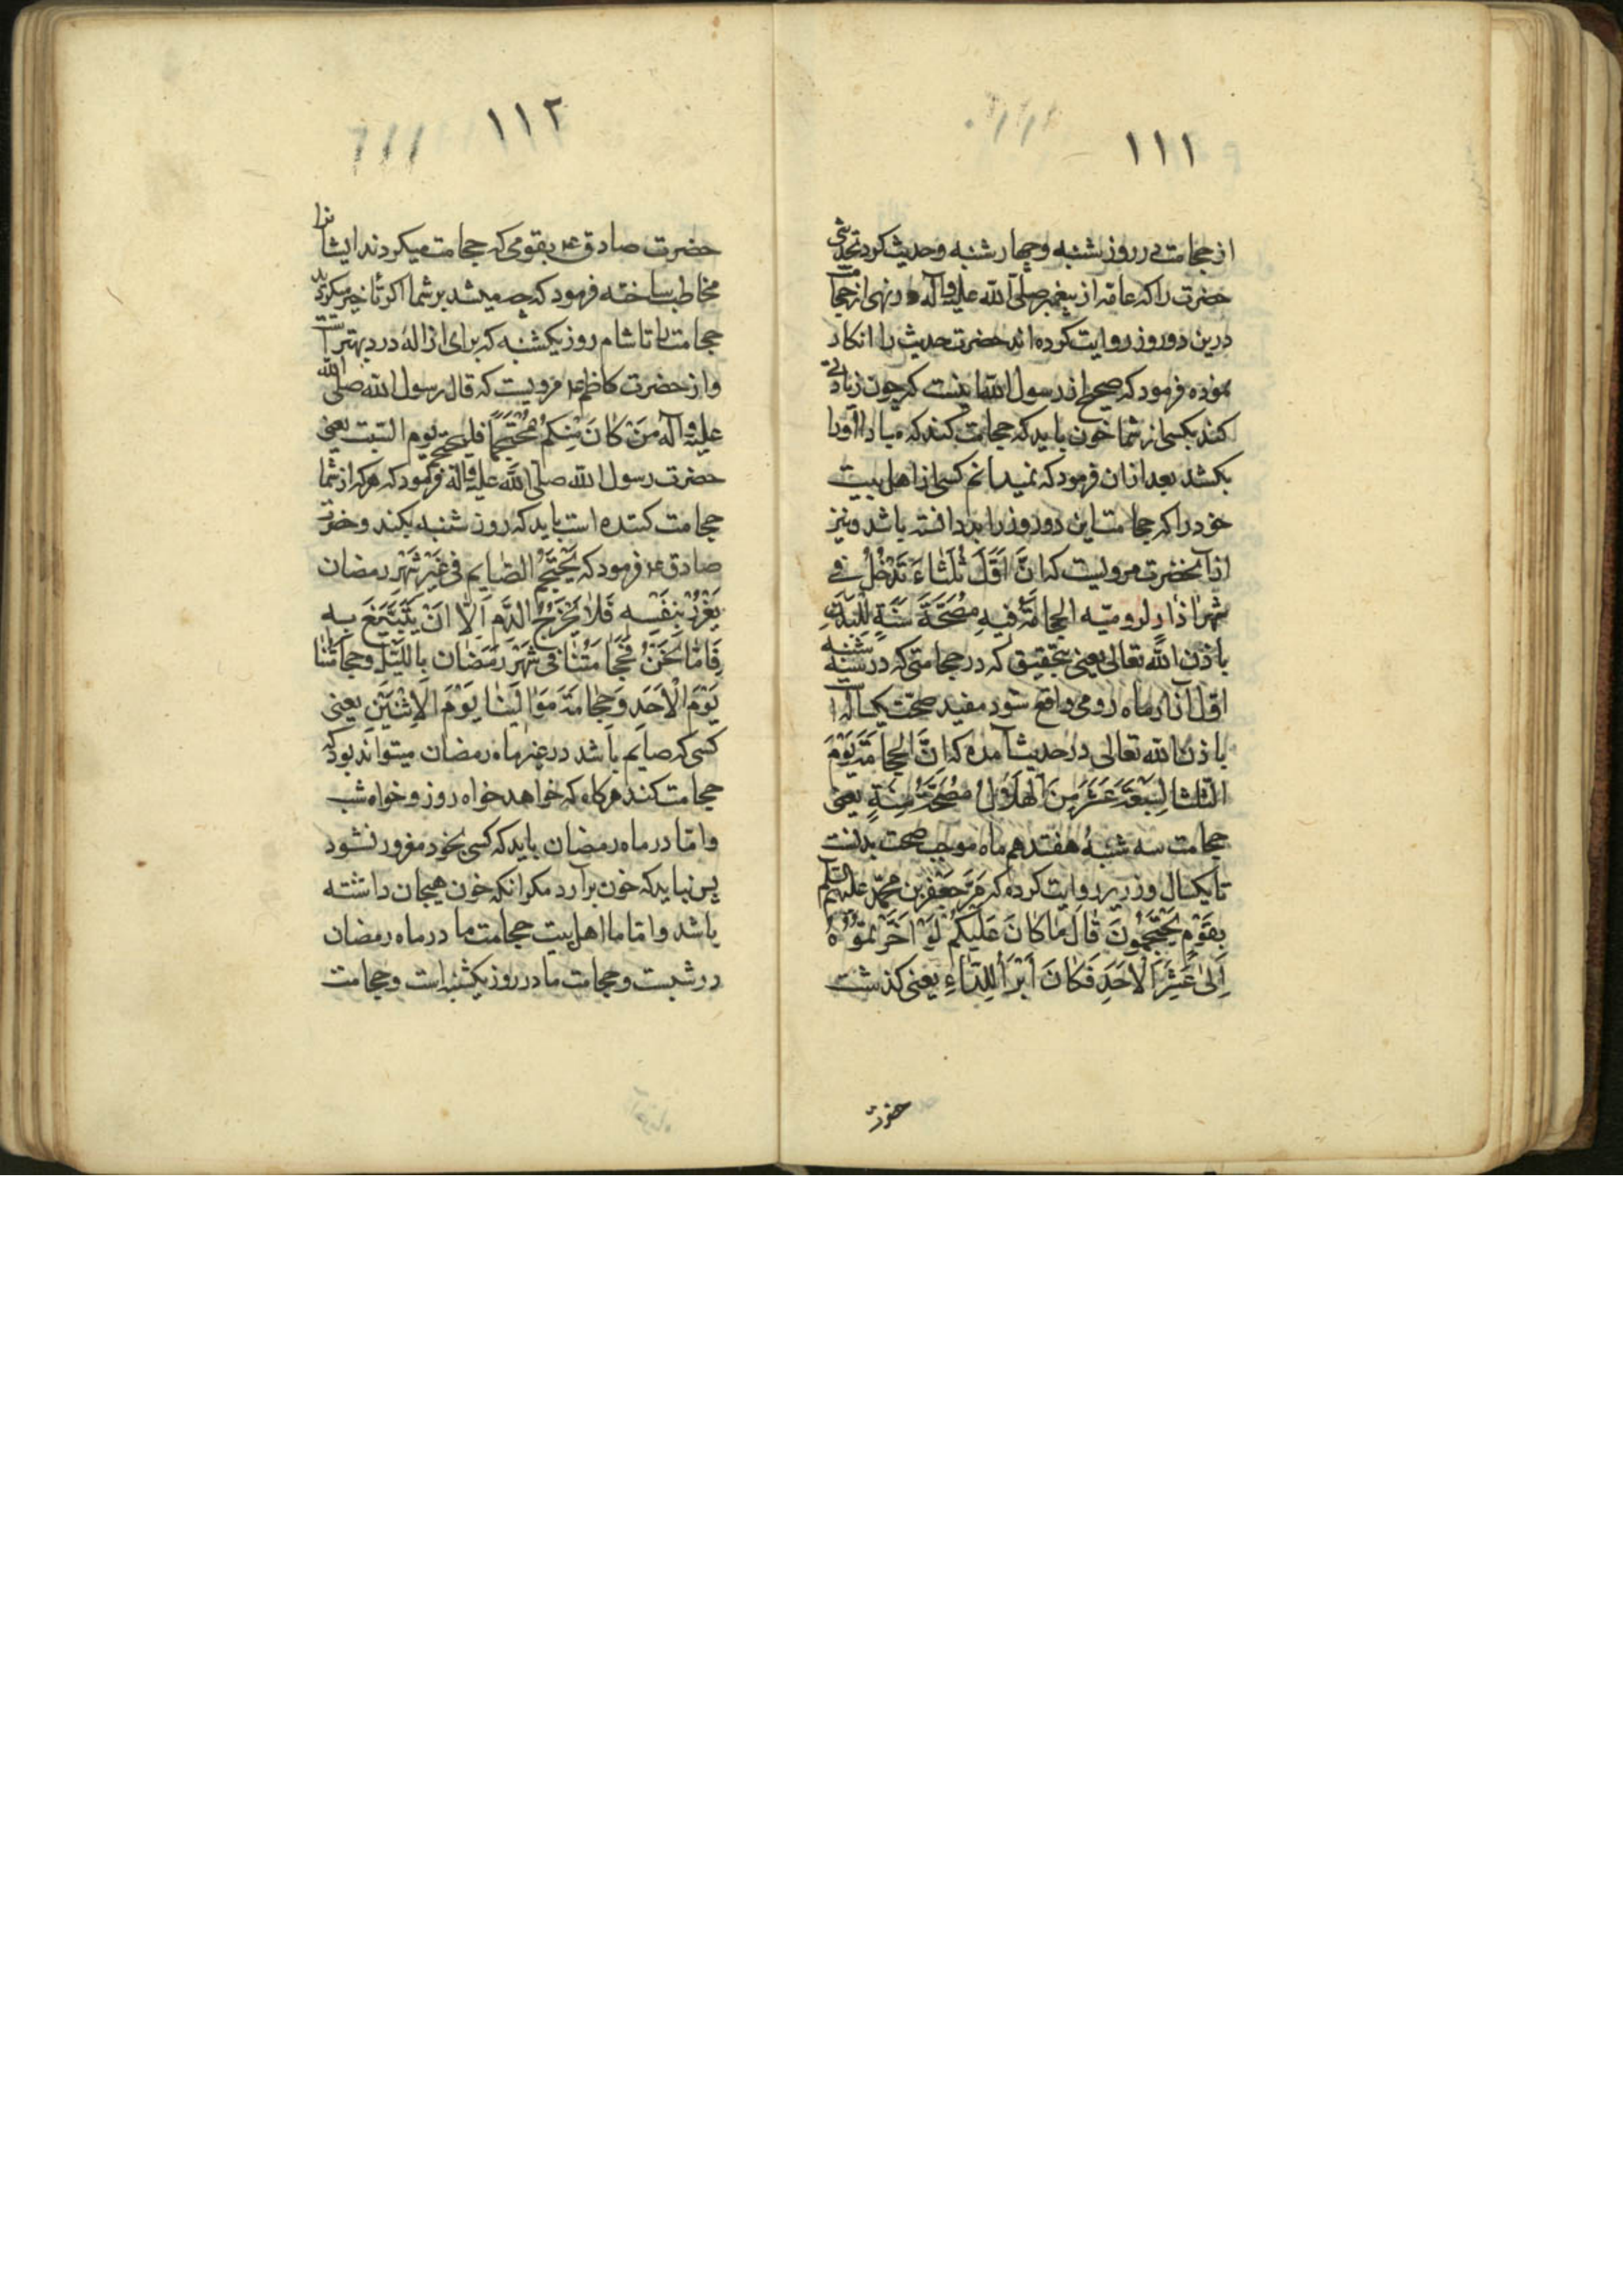 ۱۱۱
از حجامت در روز شنبه و چهار شنبه و حدیث کرد
حضرت را که عامه از پیغمبر صلی الله علیه وآله در نهی از حجامت
درین دو روز روایت کرده اند حضرت حدیث را انکار
نموده فرمود که صحیح از رسول الله اینست که چون زیادتی
کند بکسی از شما خون باید که حجامت کند که مبادا او را
بکشد بعد ازان فرمود که نمیدانم کسی از اهل بیت
خود را که حجامت این دو روز را بد دانسته باشد و نیز
از آنحضرت مرویست که اِنَّ اَوَّلَ ثَلٰثَاءَ تَدْخُلُ فی
شهر اٰذار لرومیّه الحجامَةُ فیهِ مَصَحَّةُ سَنَةٍ
باذن الله تعالی یعنی بتحقیق که در حجامتی که در سه شنبه
اوّل آذار ماه رومی واقع شود مفید صحت یکساله است
باذن الله تعالی در حدیث آمده که اِنَّ الحجامَةَ یَوْمَ
الثلثا لِسَبْعَةَ عَشَرَ مِنَ الْهِلٰالُ مَصَحَّةُ سَنَةٍ یعنی
حجامت سه شبنهٔ هفتدهم ماه موجب صحت بدنست
تا یکسال و زریر روایت کرده که مَرَّ جَعْفَر بن محمّد علیهم السلم
بِقَوْمٍ یَحْتَجِمُونَ قٰالَ مٰا کٰانَ عَلَیْکُمْ لَوْ اَخَّرْتُمُوْهُ
اِلیٰ عَشِیَّةِ الْاَحَدِ فَکٰانَ اَبْرَأُ لِلدّٰاءِ یعنی کذشت
حضرت
۱۱۲
حضرت صادق ع بقومی که حجامت میکردند ایشانرا
مخاطب ساخته فرمود که چه میشد بر شما اکر تاخیر میکردید
حجامت را تا شام روز یکشنبه که برای ازالهٔ درد بهتر است
و از حضرت کاظم ع مرویست که قال رسول الله صلی الله
علیه وآله مَنْ کٰانَ مِنْکُمْ مُحْتَجِمًا فلیحتجم یوم السّبت یعنی
حضرت رسول الله صلی الله علیه وآله فرمود که هرکه از شما
حجامت کننده است باید که روز شنبه بکند و حضرت
صادق ع فرمود که یَحْتَجِمُ الصّایم فی غَیْرِ شَهْرِ رمضان
یَغْرُرْ بِنَفْسِهِ فَلٰا یُخْرِجُ الدَّم اِلّٰا اَنْ یَتَبَیَّغَ بِهِ
فَاَمّٰا نَحْنُ فَحِجٰامَتُنٰا فی شَهْرِ رَمَضٰان بِاللَّیْلِ وحجٰامَتُنٰا
یَوْمَ الْاَحَدِ وَحِجٰامَةُ مَوٰالینٰا یَوْمَ الْاِثْنَیْنِ یعنی
کسی که صایم باشد در غیر ماه رمضان میتواند بود که
حجامت کند هرکاه که خواهد خواه روز و خواه شب
و امّا در ماه رمضان باید که کسی بخود مغرور نشود
پس نباید که خون برآرد مکر انکه خون هیجان داشته
باشد و اما ما اهل بیت حجامت ما در ماه رمضان
در شبست و حجامت ما در روز یکشنبه است و حجامت